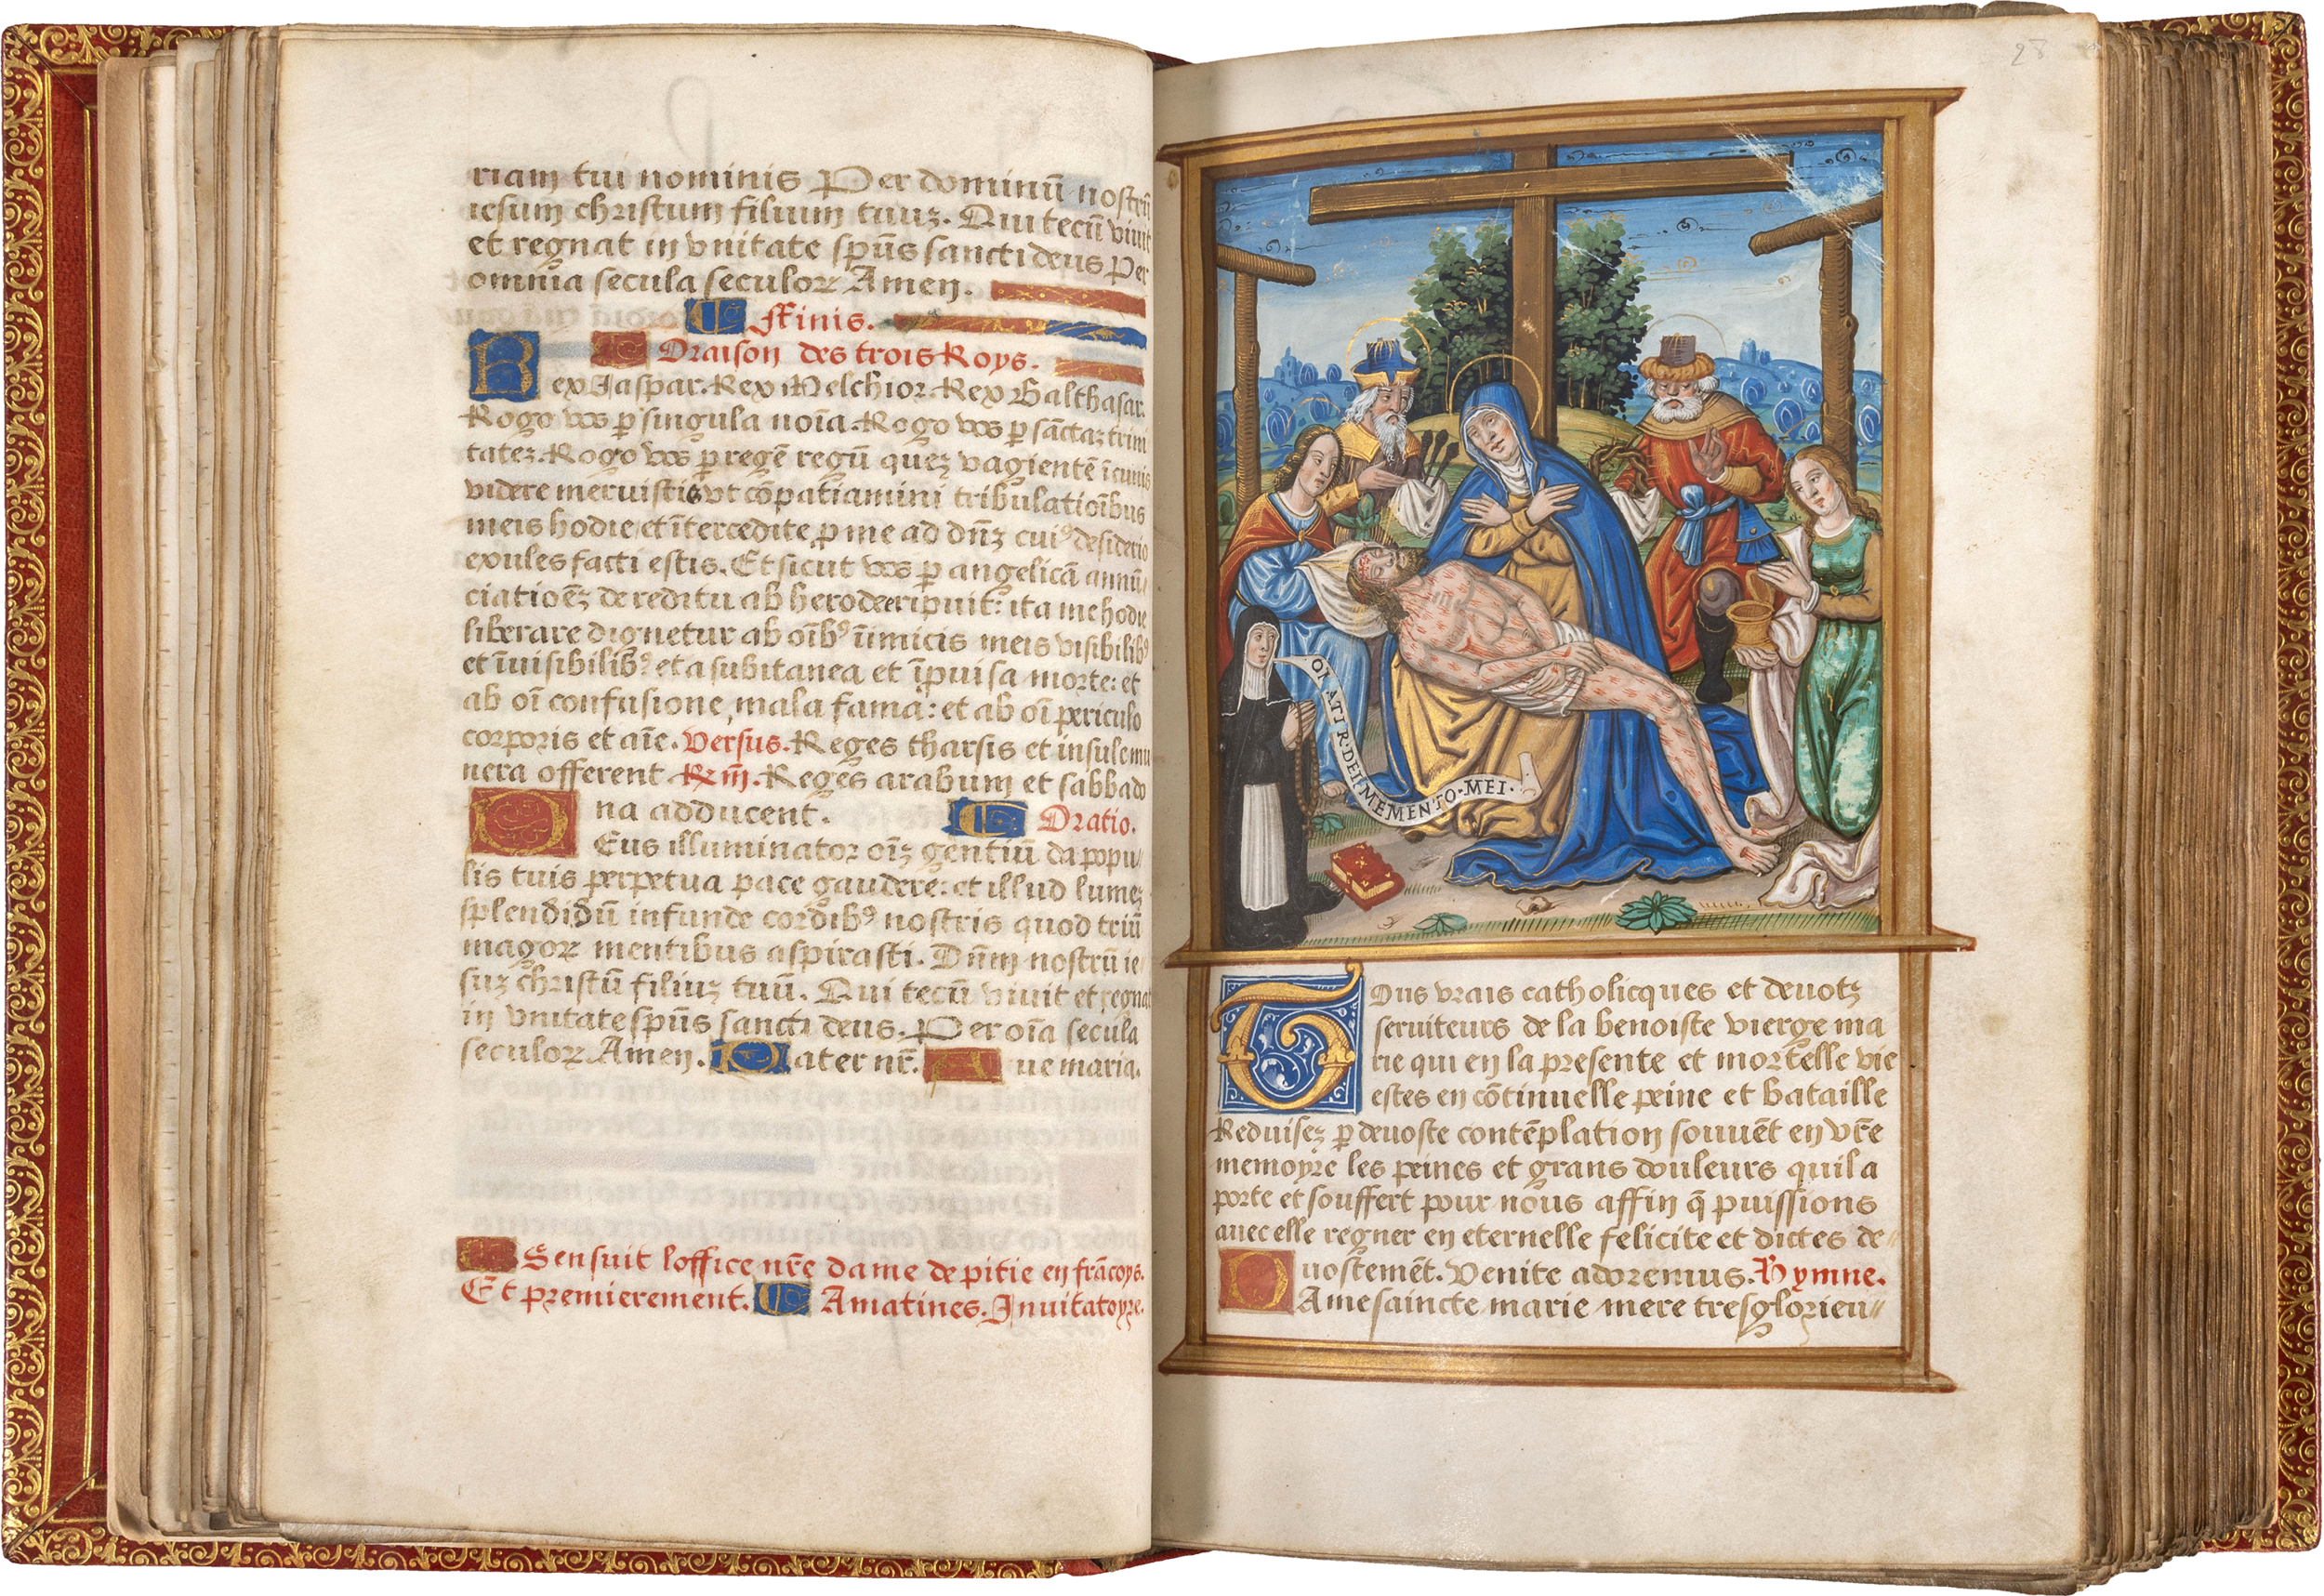 riam tui nominis Per dominū nostrū
iesum christum filium tuuz. Qui tecū viuit
et regnat in vnitate spūs sancti deus Per
omnia secula seculoꝝ Amen.
Finis.
Oraison des trois Roys.
Rex Jaspar. Rex Melchior. Rex Balthasar.
Rogo vos ꝑ singula noīa. Rogo vos ꝑ sāctaz trini
tatez. Rogo vos ꝑ regē regū quez vagientē ī cunis
videre meruistis vt cōpatiamini tribulatiōibus
meis hodie et ītercedite ꝓ me ad dn̄z cuiꝰ desiderio
exules facti estis. Et sicut vos ꝑ angelicā annū
ciatiōez de reditu ab herode eripuit: ita me hodie
liberare dignetur ab oībꝰ inimicis meis visibilibꝰ
et īuisibilibꝰ et a subitanea et īprouisa morte: et
ab oī confusione, mala fama: et ab oī periculo
corporis et aīe. Versus. Reges tharsis et insule mu
nera offerent Rm̄. Reges arabum et sabba do
na adducent. Oratio.
DEus illuminator oīz gentiū da popu
lis tuis perpetua pace gaudere: et illud lumez
splendidū infunde cordibꝰ nostris quod triū
magoꝝ mentibus aspirasti. Dn̄m nostrū ie
suz christū filiuz tuū. Qui tecū viuit et regnat
in vnitate spūs sancti deus. Per oīa secula
seculoꝝ Amen. Pater nr̄. Aue maria.
Sensuit loffice nr̄e dame de pitie en frācoys.
Et premierement. A matines. Inuitatoyre.
28
MEMENTO·MEI·
TOus vrais catholicques et deuotz
seruiteurs de la benoiste vierge ma
rie qui en la presente et mortelle vie
estes en cōtinuelle peine et bataille
Reduisez ꝑ deuoste contēplation souuēt en vr̄e
memoyre les peines et grans douleurs quil a
porte et souffert pour nous affin q̄ puissions
auec elle regner en eternelle felicite et dictes de
uostemēt. Venite adoremus. Hymne.
DAme saincte marie mere tresglorieu